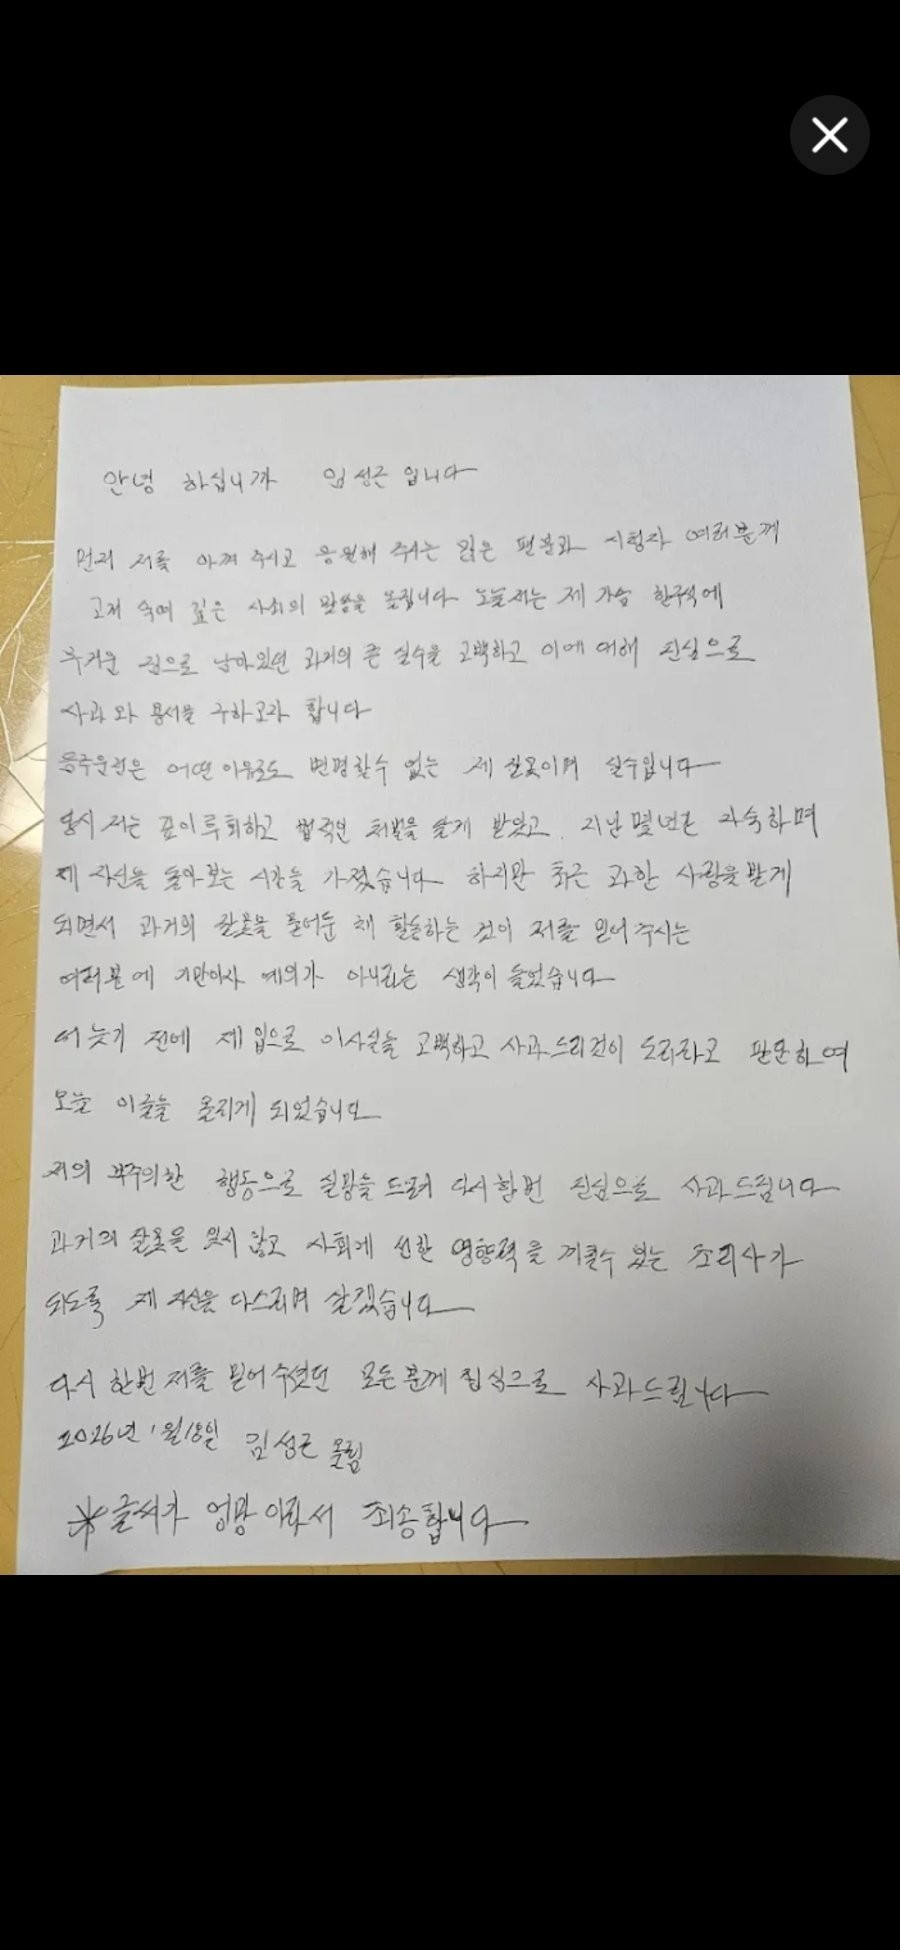 안녕 하십니까 임성근 입니다
먼저 저를 아껴 주시고 응원해 주시는 많은 팬분과 시청자 여러분께
고개 숙여 깊은 사죄의 말씀을 올립니다 오늘 저는 제 가슴 한구석에
무거운 짐으로 남아있던 과거의 큰 실수를 고백하고 이에 대해 진심으로
사과와 용서를 구하고자 합니다
음주운전은 어떤 이유로도 변명할수 없는 제 잘못이며 실수입니다
당시 저는 깊이 후회하고 법적인 처벌을 달게 받았고 지난 몇년간 자숙하며
제 자신을 돌아보는 시간을 가졌습니다 하지만 최근 과한 사랑을 받게
되면서 과거의 잘못을 묻어둔 채 활동하는 것이 저를 믿어 주시는
여러분에 기만이자 예의가 아니라는 생각이 들었습니다
더 늦기 전에 제 입으로 이사실을 고백하고 사과드리것이 도리라고 판단하여
오늘 이글을 올리게 되었습니다
저의 부주의한 행동으로 실망을 드려 다시한번 진심으로 사과드립니다
과거의 잘못을 잊지 않고 사회에 선한 영향력을 끼칠수 있는 조리사가
되도록 제 자신을 다스리며 살겠습니다
다시 한번 저를 믿어 주셨던 모든 분께 진심으로 사과드립니다
2026년 1월18일 임성근 올림
※글씨가 엉망이라서 죄송합니다